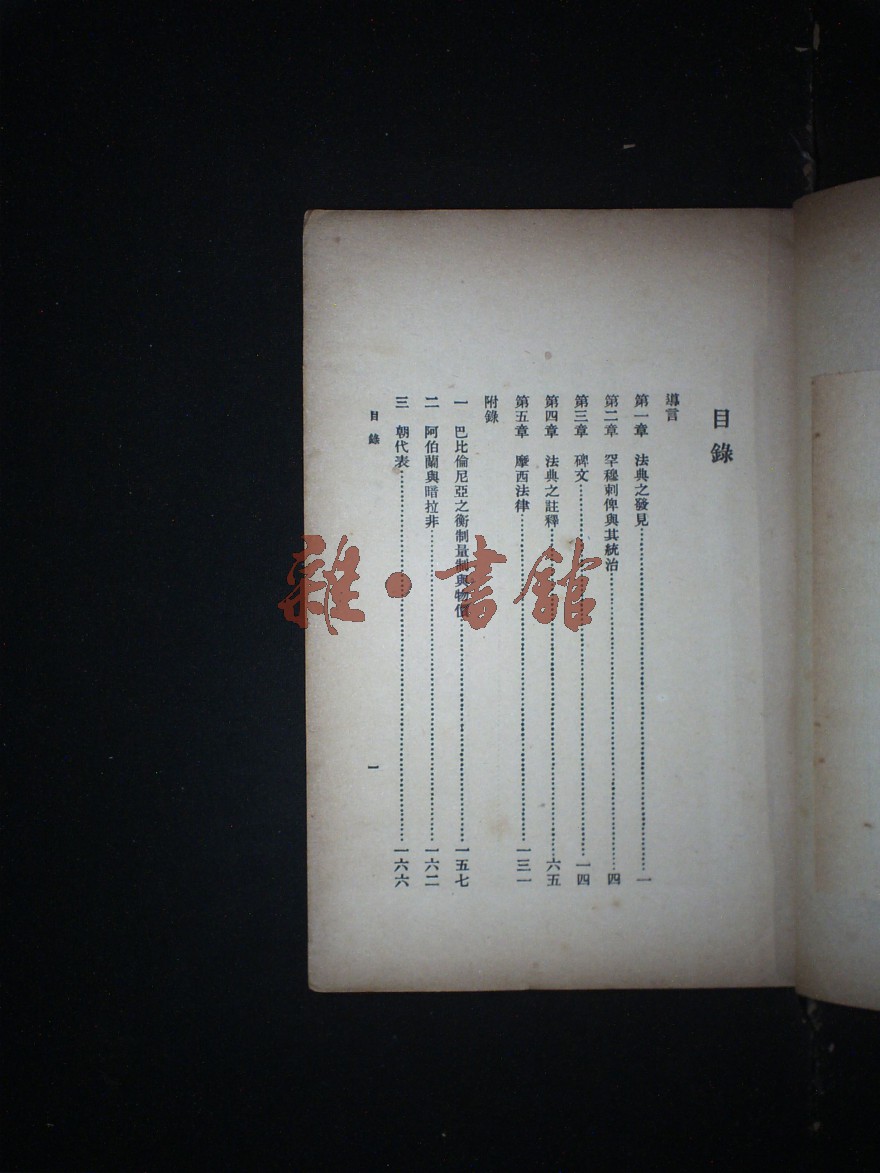 目錄
導言
第一章 法典之發見……一
第二章 罕穆剌俾與其統治……四
第三章 碑文……一四
第四章 法典之註釋……六五
第五章 摩西法律……一三一
附錄
一 巴比倫尼亞之衡制量制與物價……一五七
二 阿伯蘭與暗拉非……一六二
三 朝代表……一六六
目錄
一
雜·書館